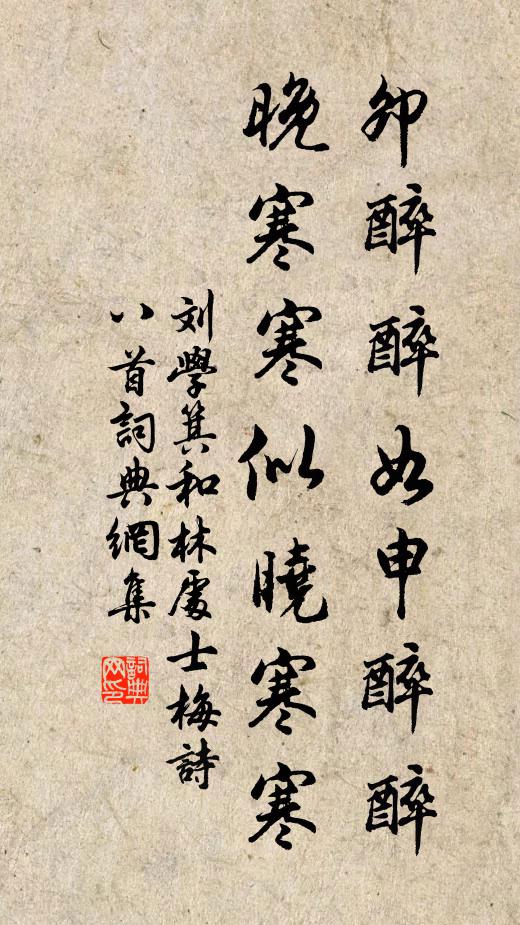 卯醉醉如申醉醉
晚寒寒似曉寒寒
刘學箕和林處士梅詩
八首詞典網集
詞典
网印